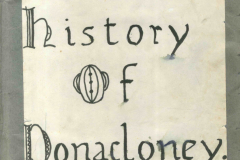 History
Of
Donacloney.